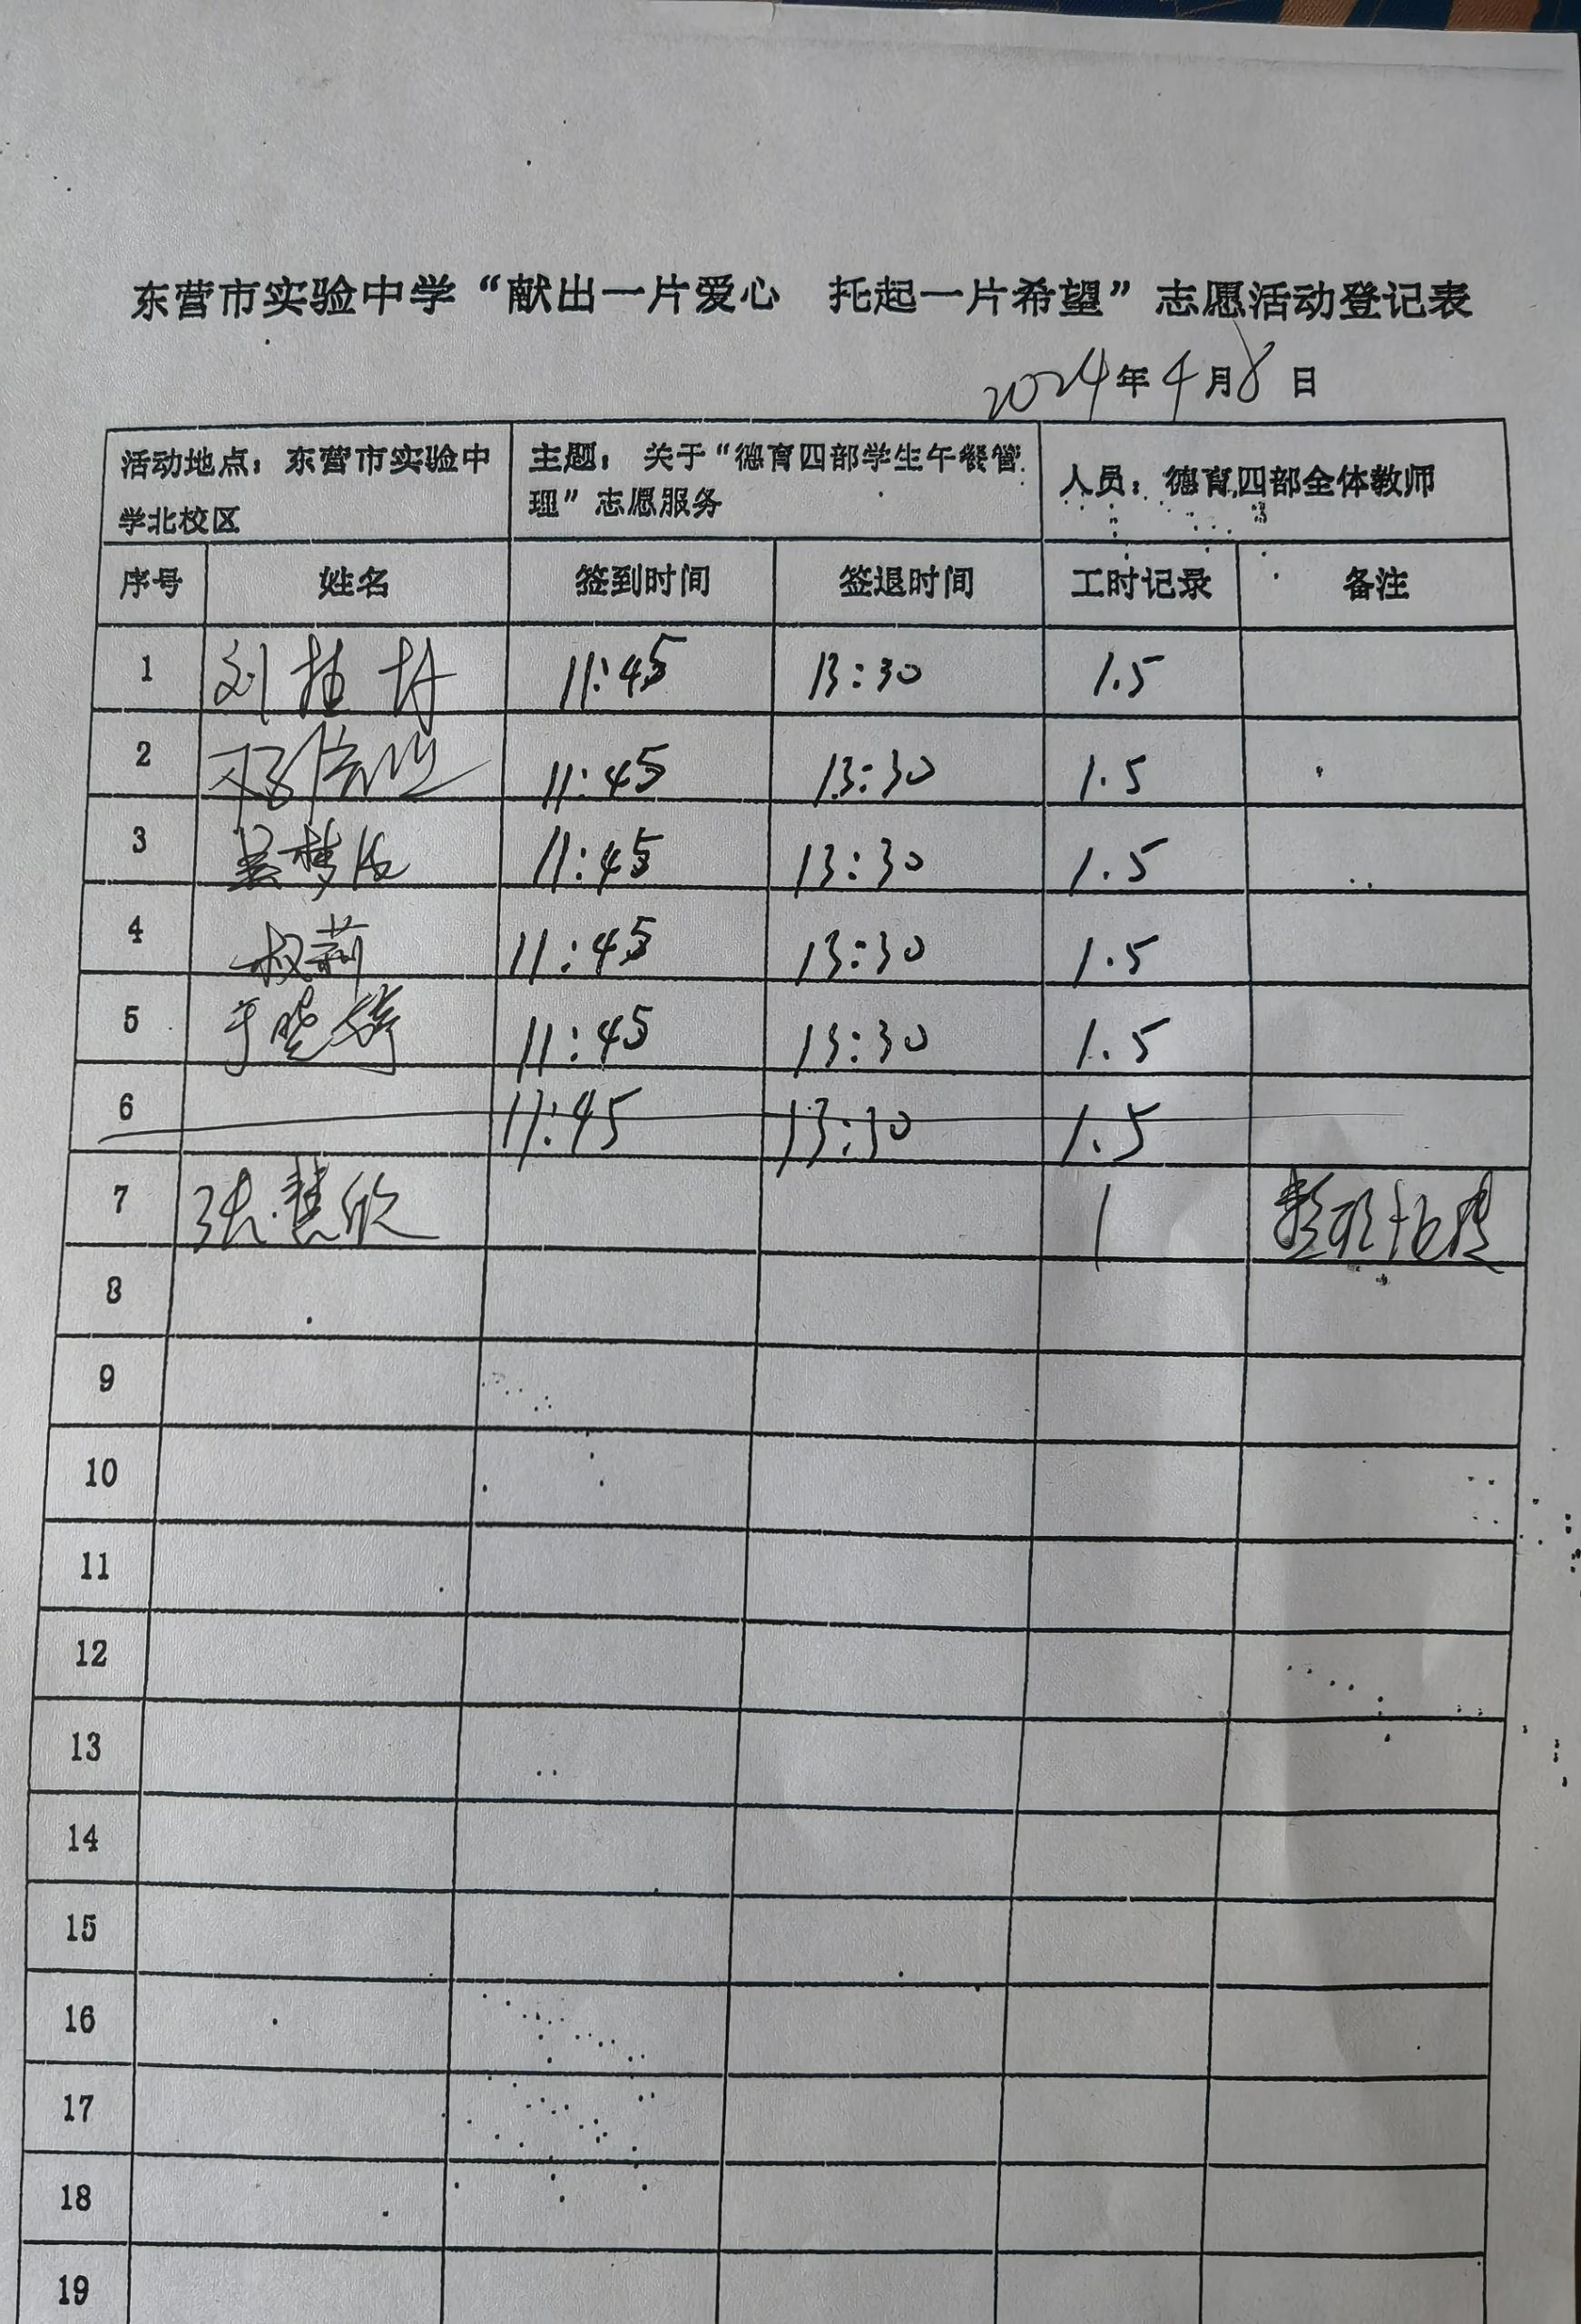 东营市实验中学“献出一片爱心 托起一片希望”志愿活动登记表
2024年4月8日
活动地点：东营市实验中学北校区 主题：关于“德育四部学生午餐管理”志愿服务 人员：德育四部全体教师
序号 姓名 签到时间 签退时间 工时记录 备注
1 刘 11:45 13:30 1.5
2 11:45 13:30 1.5
3 吴梦 11:45 13:30 1.5
4 权莉 11:45 13:30 1.5
5 于晓婷 11:45 13:30 1.5
6 11:45 13:30 1.5
7 张慧欣 1
8
9
10
11
12
13
14
15
16
17
18
19